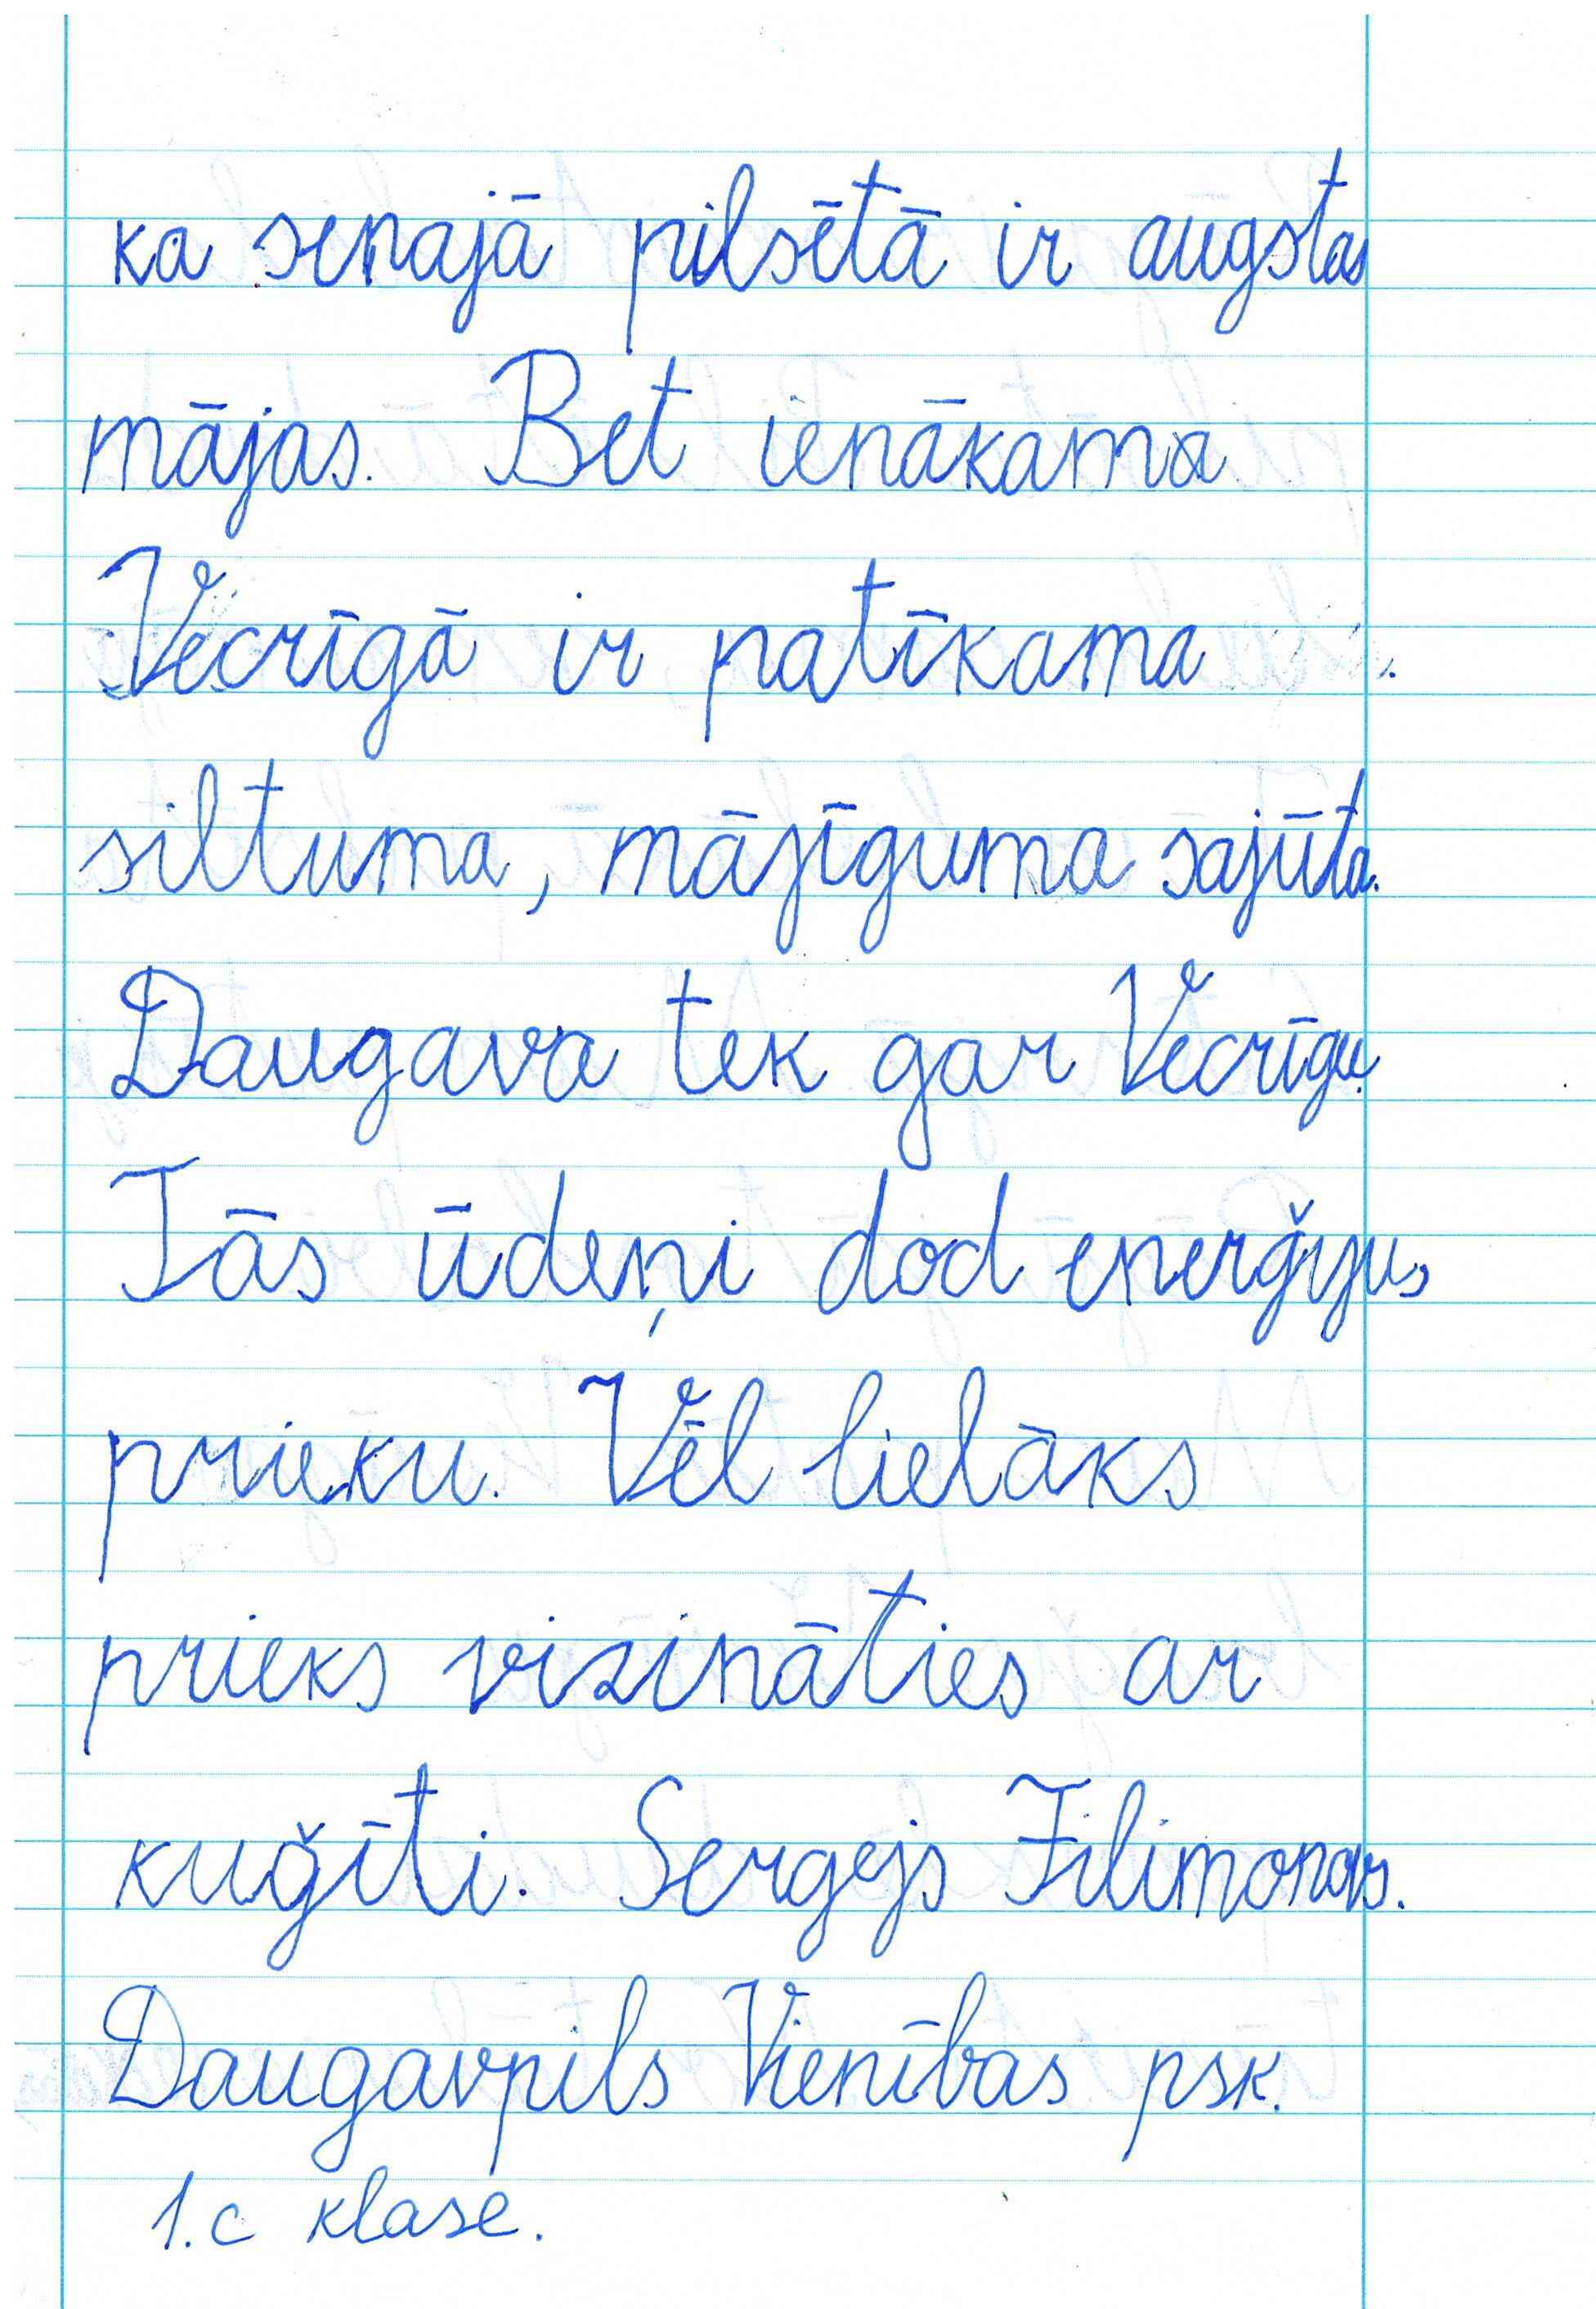 ka senajā pilsētā ir augstas
mājas. Bet ienākama
Vecrīgā ir patīkama
siltuma, mājīguma sajūta.
Daugava tek gar Vecrīgu.
Tās ūdeņi dod enerģiju,
prieku. Vēl lielāks
prieks vizināties ar
kuģīti. Sergejs Filimonovs.
Daugavpils Vienības psk.
1.c klase.